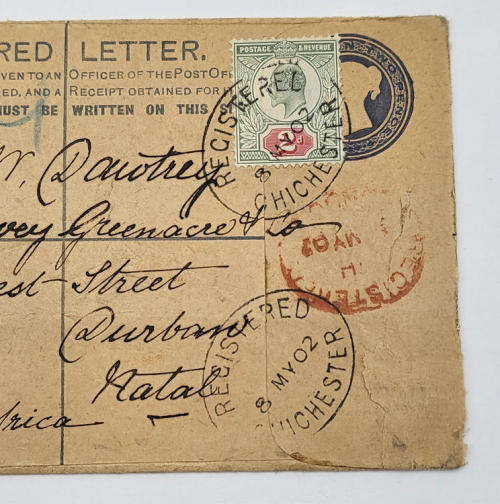 RED LETTER.
VEN TO AN OFFICER OF THE POST OF
ED, AND A RECEIPT OBTAINED FOR I
UST BE WRITTEN ON THIS
POSTAGE & REVENUE
2D
REGISTERED
8 MY 02
CHICHESTER
W. Dawtrey
vey Greenacre & Co
est Street
Durban
Natal
frica
REGISTERED
MY 02
REGISTERED
8 MY 02
CHICHESTER